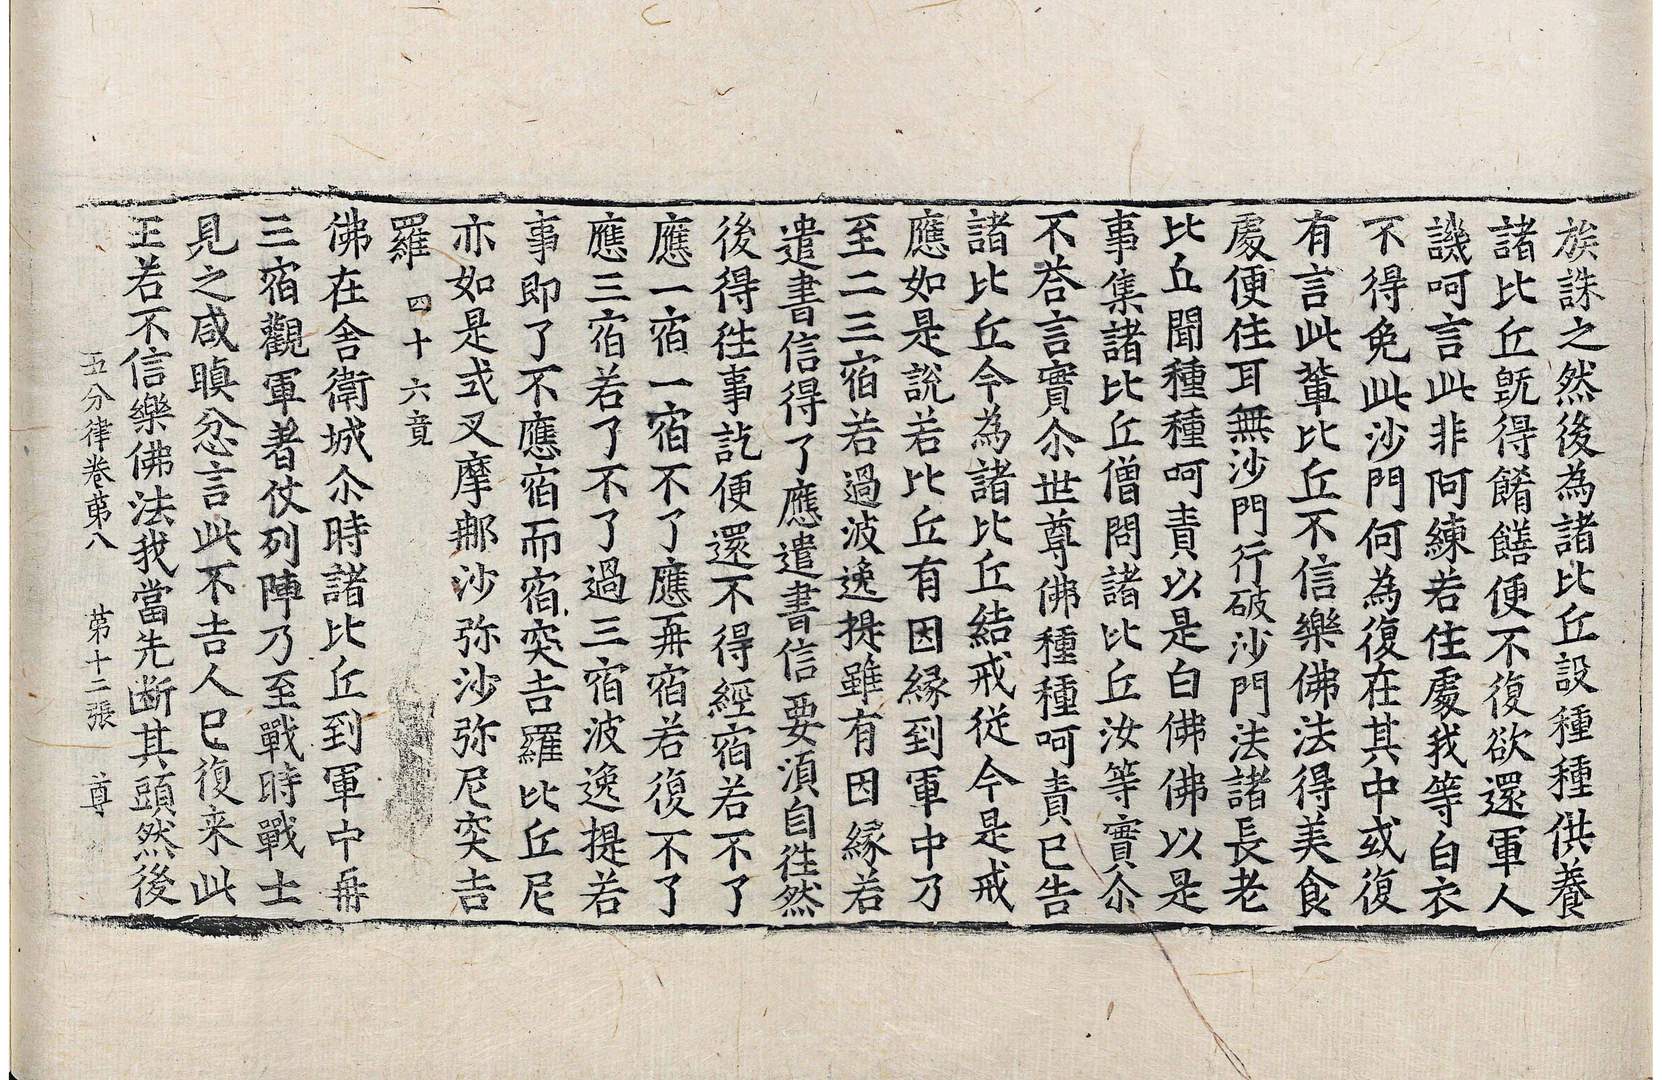 族誅之然後為諸比丘設種種供養
諸比丘旣得餚饍便不復欲還軍人
譏呵言此非阿練若住處我等白衣
不得免此沙門何為復在其中或復
有言此輩比丘不信樂佛法得美食
處便住耳無沙門行破沙門法諸長老
比丘聞種種呵責以是白佛佛以是
事集諸比丘僧問諸比丘汝等實尒
不荅言實尒世尊佛種種呵責已告
諸比丘今為諸比丘結戒從今是戒
應如是說若比丘有因縁到軍中乃
至二三宿若過波逸提雖有因縁若
遣書信得了應遣書信要湏自徃然
後得徃事訖便還不得經宿若不了
應一宿一宿不了應再宿若復不了
應三宿若了不了過三宿波逸提若
事即了不應宿而宿突吉羅比丘尼
亦如是式叉摩䣜沙弥沙弥尼突吉
羅 四十六竟
佛在舍衛城尒時諸比丘到軍中再
三宿觀軍著仗列陣乃至戰時戰士
見之咸瞋忿言此不吉人已復来此
王若不信樂佛法我當先断其頭然後
五分律卷苐八 苐十二張 尊